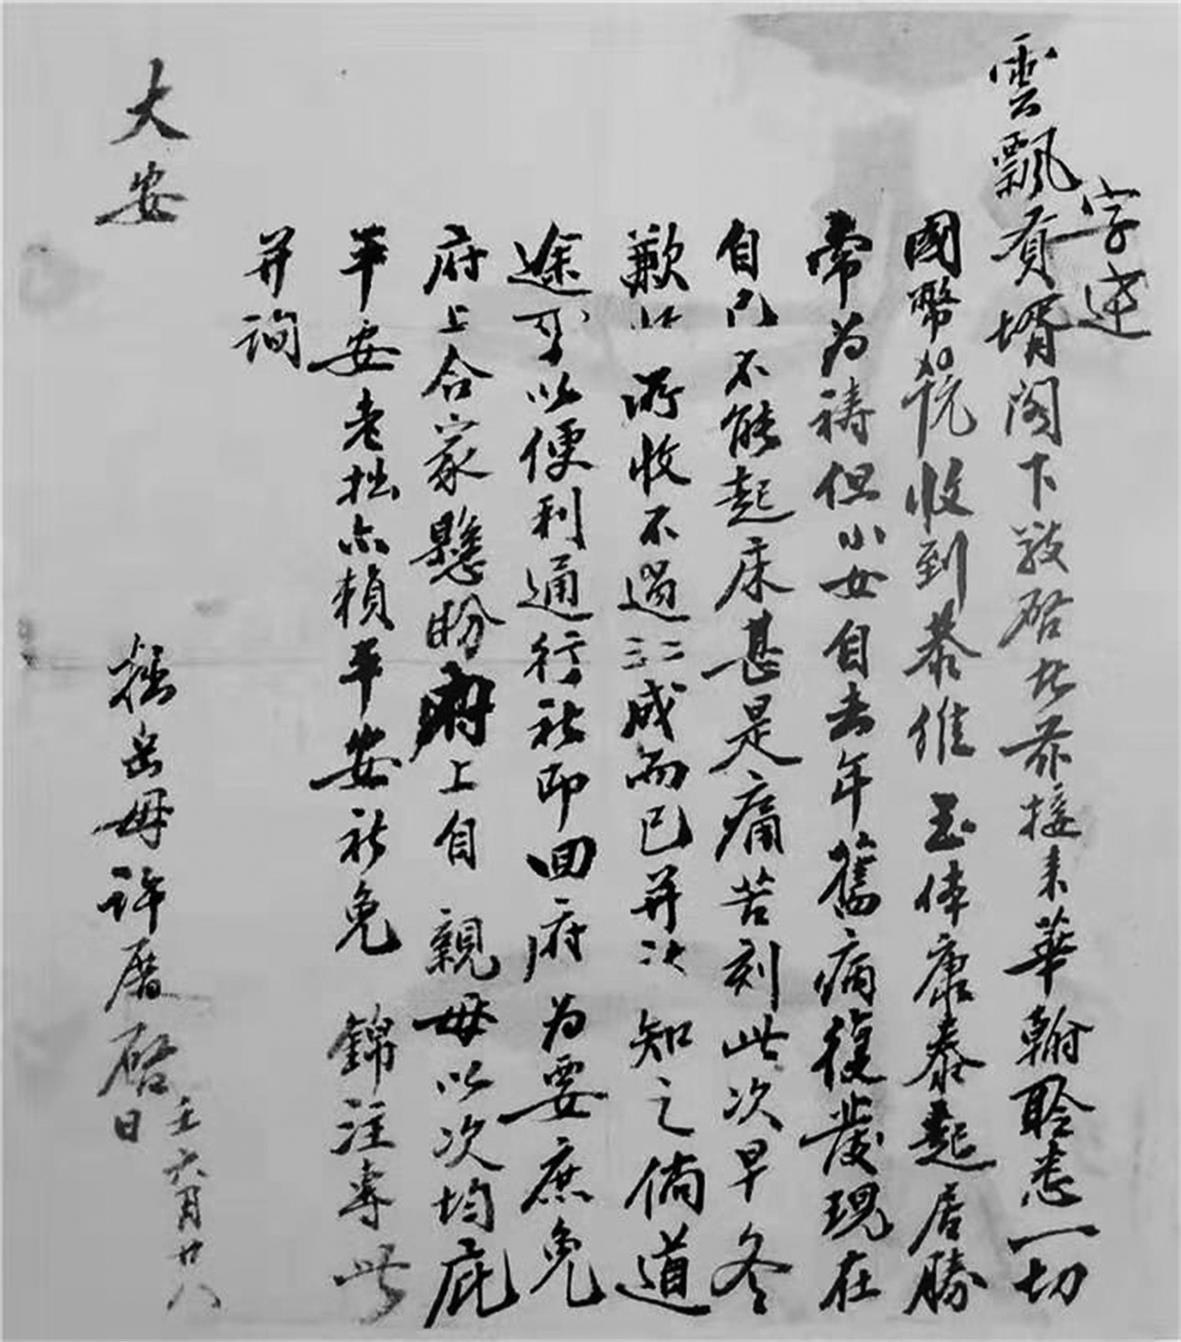 字达
雲飄賢壻閣下敬啓者茲接来華翰聆悉一切
國幣 收到恭维 玉体康泰起居勝
常为禱但小女自去年舊病復發現在
自己不能起床甚是痛苦刻此次早冬
歉收所收不過三二成而已并此知之倘道
途可以便利通行祈即回府为要庶免
府上合家懸盼府上自 親母以次均庇
平安老拙亦賴平安祈免 錦注専此
并詢
大安
拙岳母許 啓
壬六月廿八
日